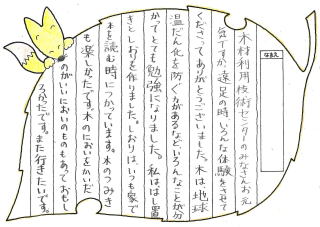 なまえ
木材利用技術センターのみなさんお元
気ですか。遠足の時、いろんな体験をさせて
くださってありがとうございました。木は地球
温だん化を防ぐ力があるなどいろんなことが分
かってとても勉強になりました。私は、はし置
きとしおりを作りました。しおりは、いつも家で
本を読む時につかっています。木のつみき
も楽しかったです。木のにおいをかいだ
のがいいにおいのものもあっておもし
ろかったです。また行きたいです。